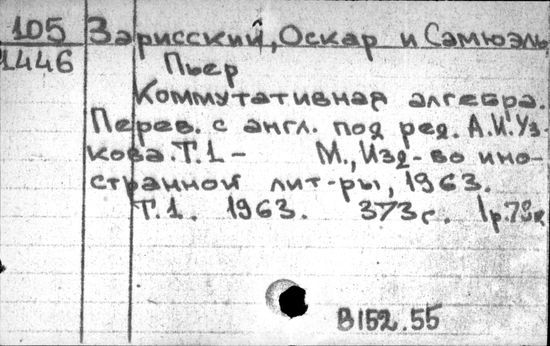 105 Зарисский, Оскар и Самюэль,
1446 Пьер
Коммутативная алгебра.
Перев. с англ. под ред. А.И.Уз-
кова. Т.1- М., Изд-во ино-
странной лит-ры, 1963.
Т.1. 1963. 373с. 1р.78к
В152.55